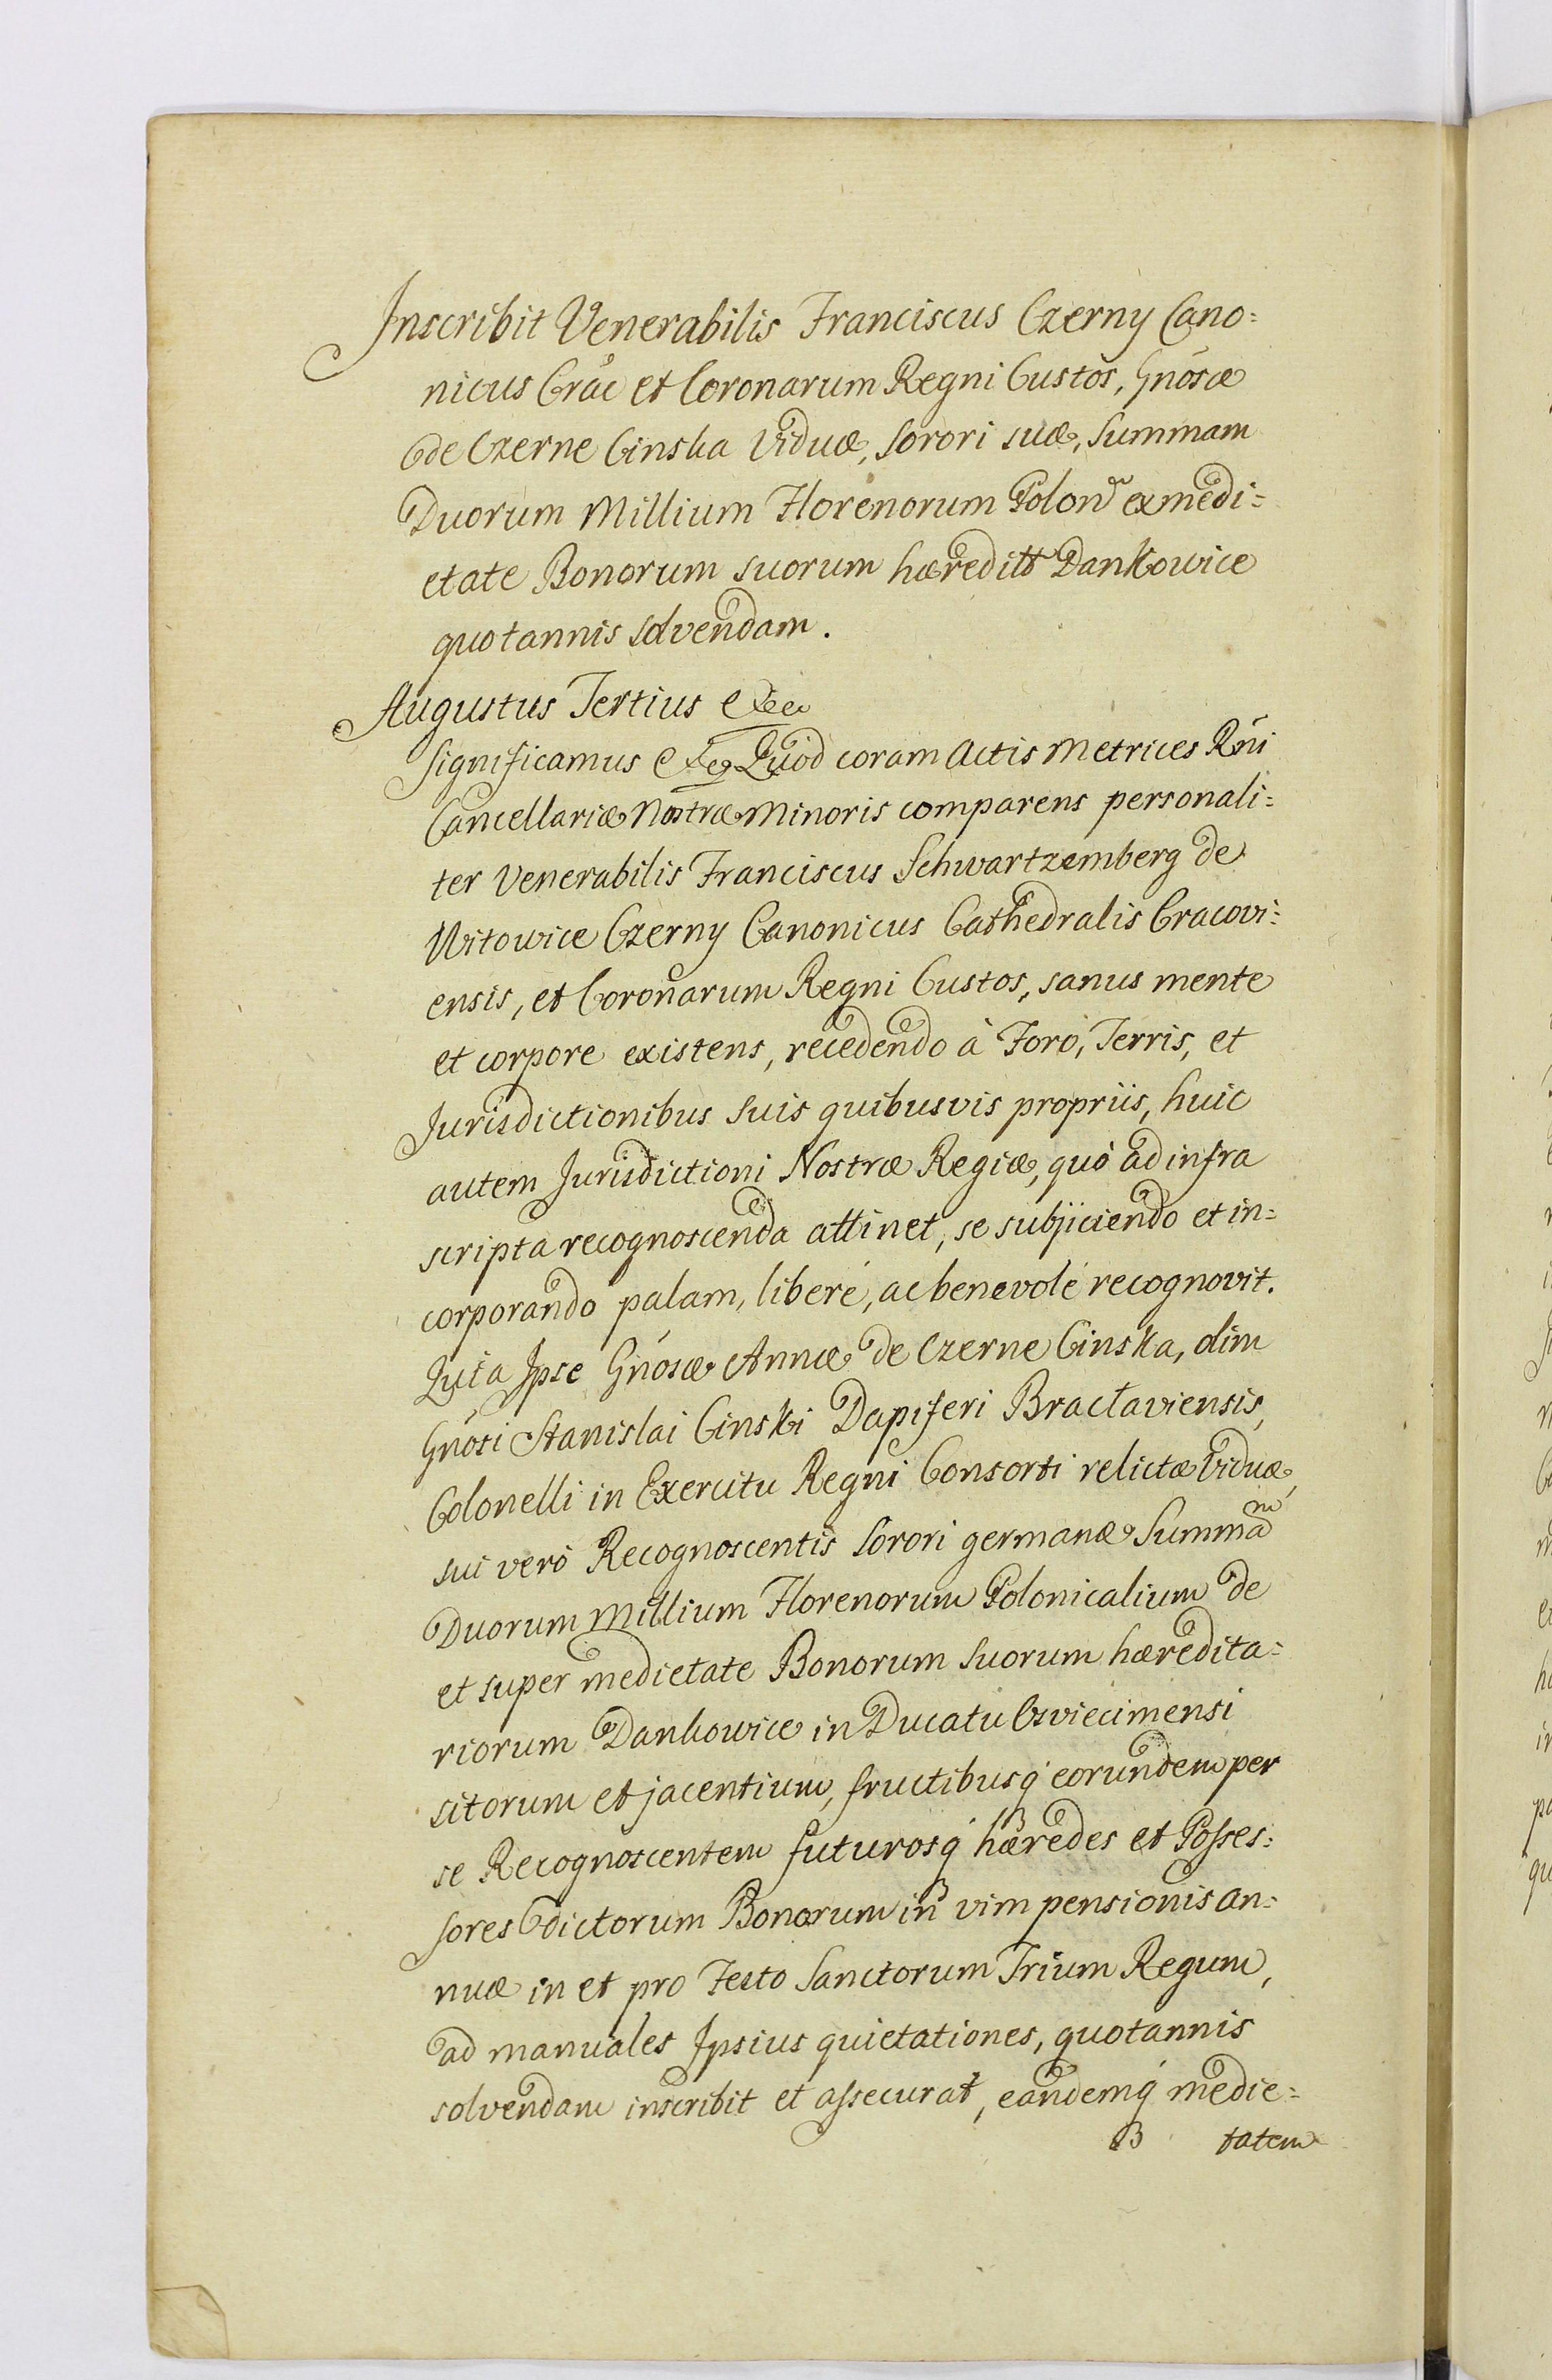 Inscribit Venerabilis Franciscus Czerny Cano=
nicus Crac̃ et Coronarum Regni Custos, Gñosæ
de Czerne Cinska Viduæ, Sorori suæ, Summam
Duorum Millium Florenorum Polon̄ ex medi=
etate Bonorum suorum hæreditt Dankowice
quotannis solvendam.
Augustus Tertius etc
Significamus etc Quod coram Actis Metrices Rñi
Cancellariæ Nostræ Minoris comparens personali=
ter Venerabilis Franciscus Schwartzemberg de
Witowice Czerny Canonicus Cathedralis Cracovi=
ensis, et Coronarum Regni Custos, sanus mente
et corpore existens, recedendo à Foro, Terris, et
Jurisdictionibus suis quibusvis propriis, huic
autem Jurisdictioni Nostræ Regiæ, quò ad infra
scripta recognoscenda attinet, se subjiciendo et in=
corporando palam, liberé, ac benevolé recognovit.
Quia Ipse Gñosæ Annæ de Czerne Cinska, olim
Gñosi Stanislai Cinski Dapiferi Braclaviensis,
Colonelli in Exercitu Regni Consorti relictæ Viduæ,
sui veró Recognoscentis Sorori germanæ Summam
Duorum Millium Florenorum Polonicalium de
et super medietate Bonorum suorum hæredita=
riorum Dankowice in Ducatu Osviecimensi
sitorum et jacentium, fructibusq́ eorundem per
se Recognoscentem futurosq́ hæredes et Posses=
sores dictorum Bonorum in vim pensionis an=
nuæ in et pro Festo Sanctorum Trium Regum,
ad manuales Ipsius quietationes, quotannis
solvendam inscribit et assecurat, eandemq́ medie=
B tatem